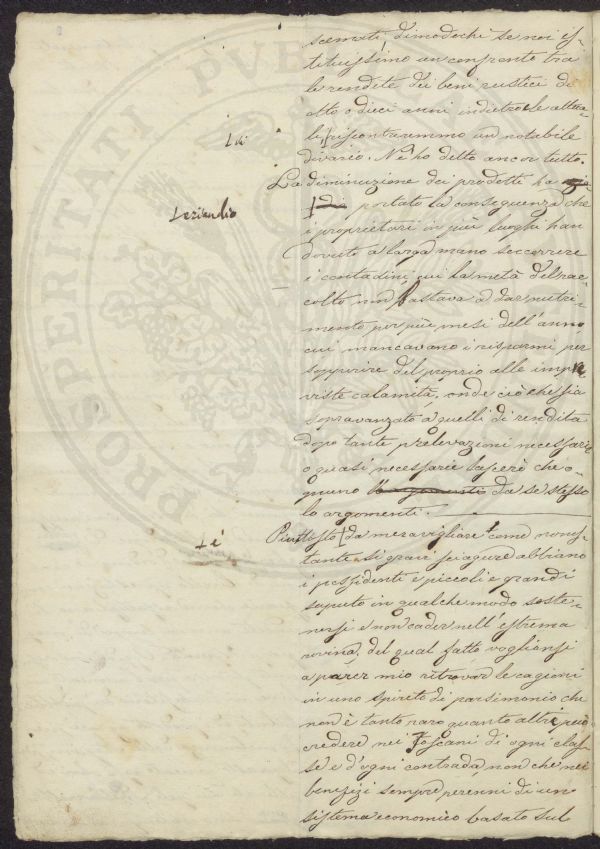 scemati, dimodochè se noi is-
tituissimo un confronto tra
le rendite dei beni rustici di
otto o dieci anni indietro e le attua-
li, riscontraremmo un notabile
divario. Nè ho detto ancor tutto.
La diminuzione dei prodotti ha
portato la conseguenza che
i proprietari in più luoghi han
dovuto a larga mano soccorrere
i contadini cui la metà del rac-
colto non bastava a dar nutri-
mento per più mesi dell'anno
cui mancavano i risparmi per
supplire del proprio alle impre-
viste calamità, onde ciò che sia
sopravanzato a quelli di rendita
dopo tante prelevazioni necessarie
o quasi necessarie lascerò che o-
gnuno da se stesso
lo argomenti.
Piuttosto da meravigliare come nonos-
tante si gravi sciagure abbiano
i possidenti e piccoli e grandi
saputo in qualche modo soste-
nersi e non cader nell'estrema
rovina, del qual fatto vogliansi
a parer mio ritrovar le cagioni
in uno spirito di parsimonio che
non è tanto raro quanto altri può
credere nei Toscani di ogni clas-
se e d'ogni contrada, non che nei
benefizi sempre perenni di un
sistema economico basato sul
eziandio
è
PROSPERITATI PVB